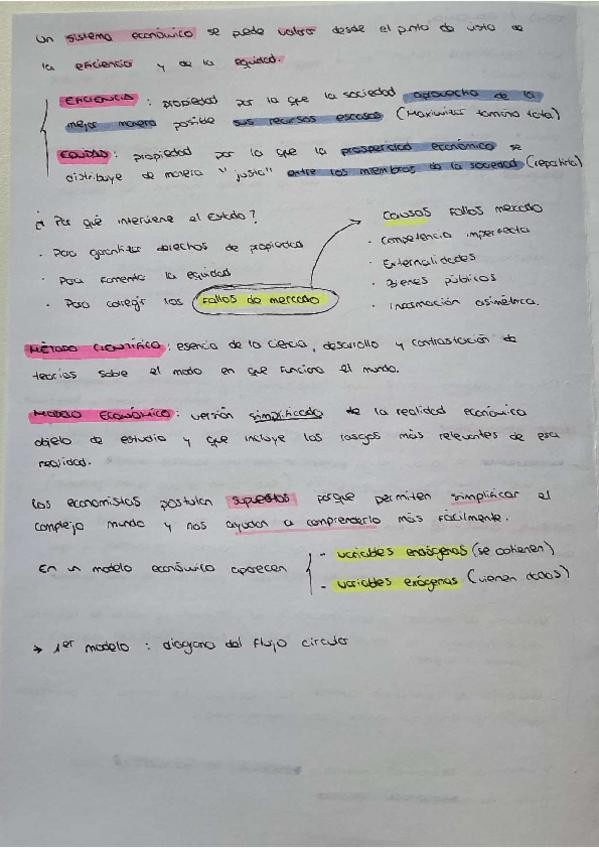 Un sistema económico se puede valorar desde el punto de vista de
la eficiencia y de la equidad.
EFICIENCIA : propiedad por la que la sociedad aprovecha de la
mejor manera posible sus recursos escasos (Maximizar tamaño tarta)
EQUIDAD : propiedad por la que la prosperidad económica se
distribuye de manera "justa" entre los miembros de la sociedad (repartirla)
¿ Por qué interviene el Estado ?
· Para garantizar derechos de propiedad
· Para fomentar la equidad
· Para corregir los fallos de mercado
Causas fallos mercado
· Competencia imperfecta
· Externalidades
· Bienes públicos
· Información asimétrica.
MÉTODO CIENTÍFICO : esencia de la ciencia, desarrollo y contrastación de
teorías sobre el modo en que funciona el mundo.
MODELO ECONÓMICO : versión simplificada de la realidad económica
objeto de estudio y que incluye los rasgos más relevantes de esa
realidad.
Los economistas postulan supuestos porque permiten simplificar el
complejo mundo y nos ayudan a comprenderlo más fácilmente.
En un modelo económico aparecen
- variables endógenas (se obtienen)
- variables exógenas (vienen dadas)
→ 1er modelo : diagrama del flujo circular